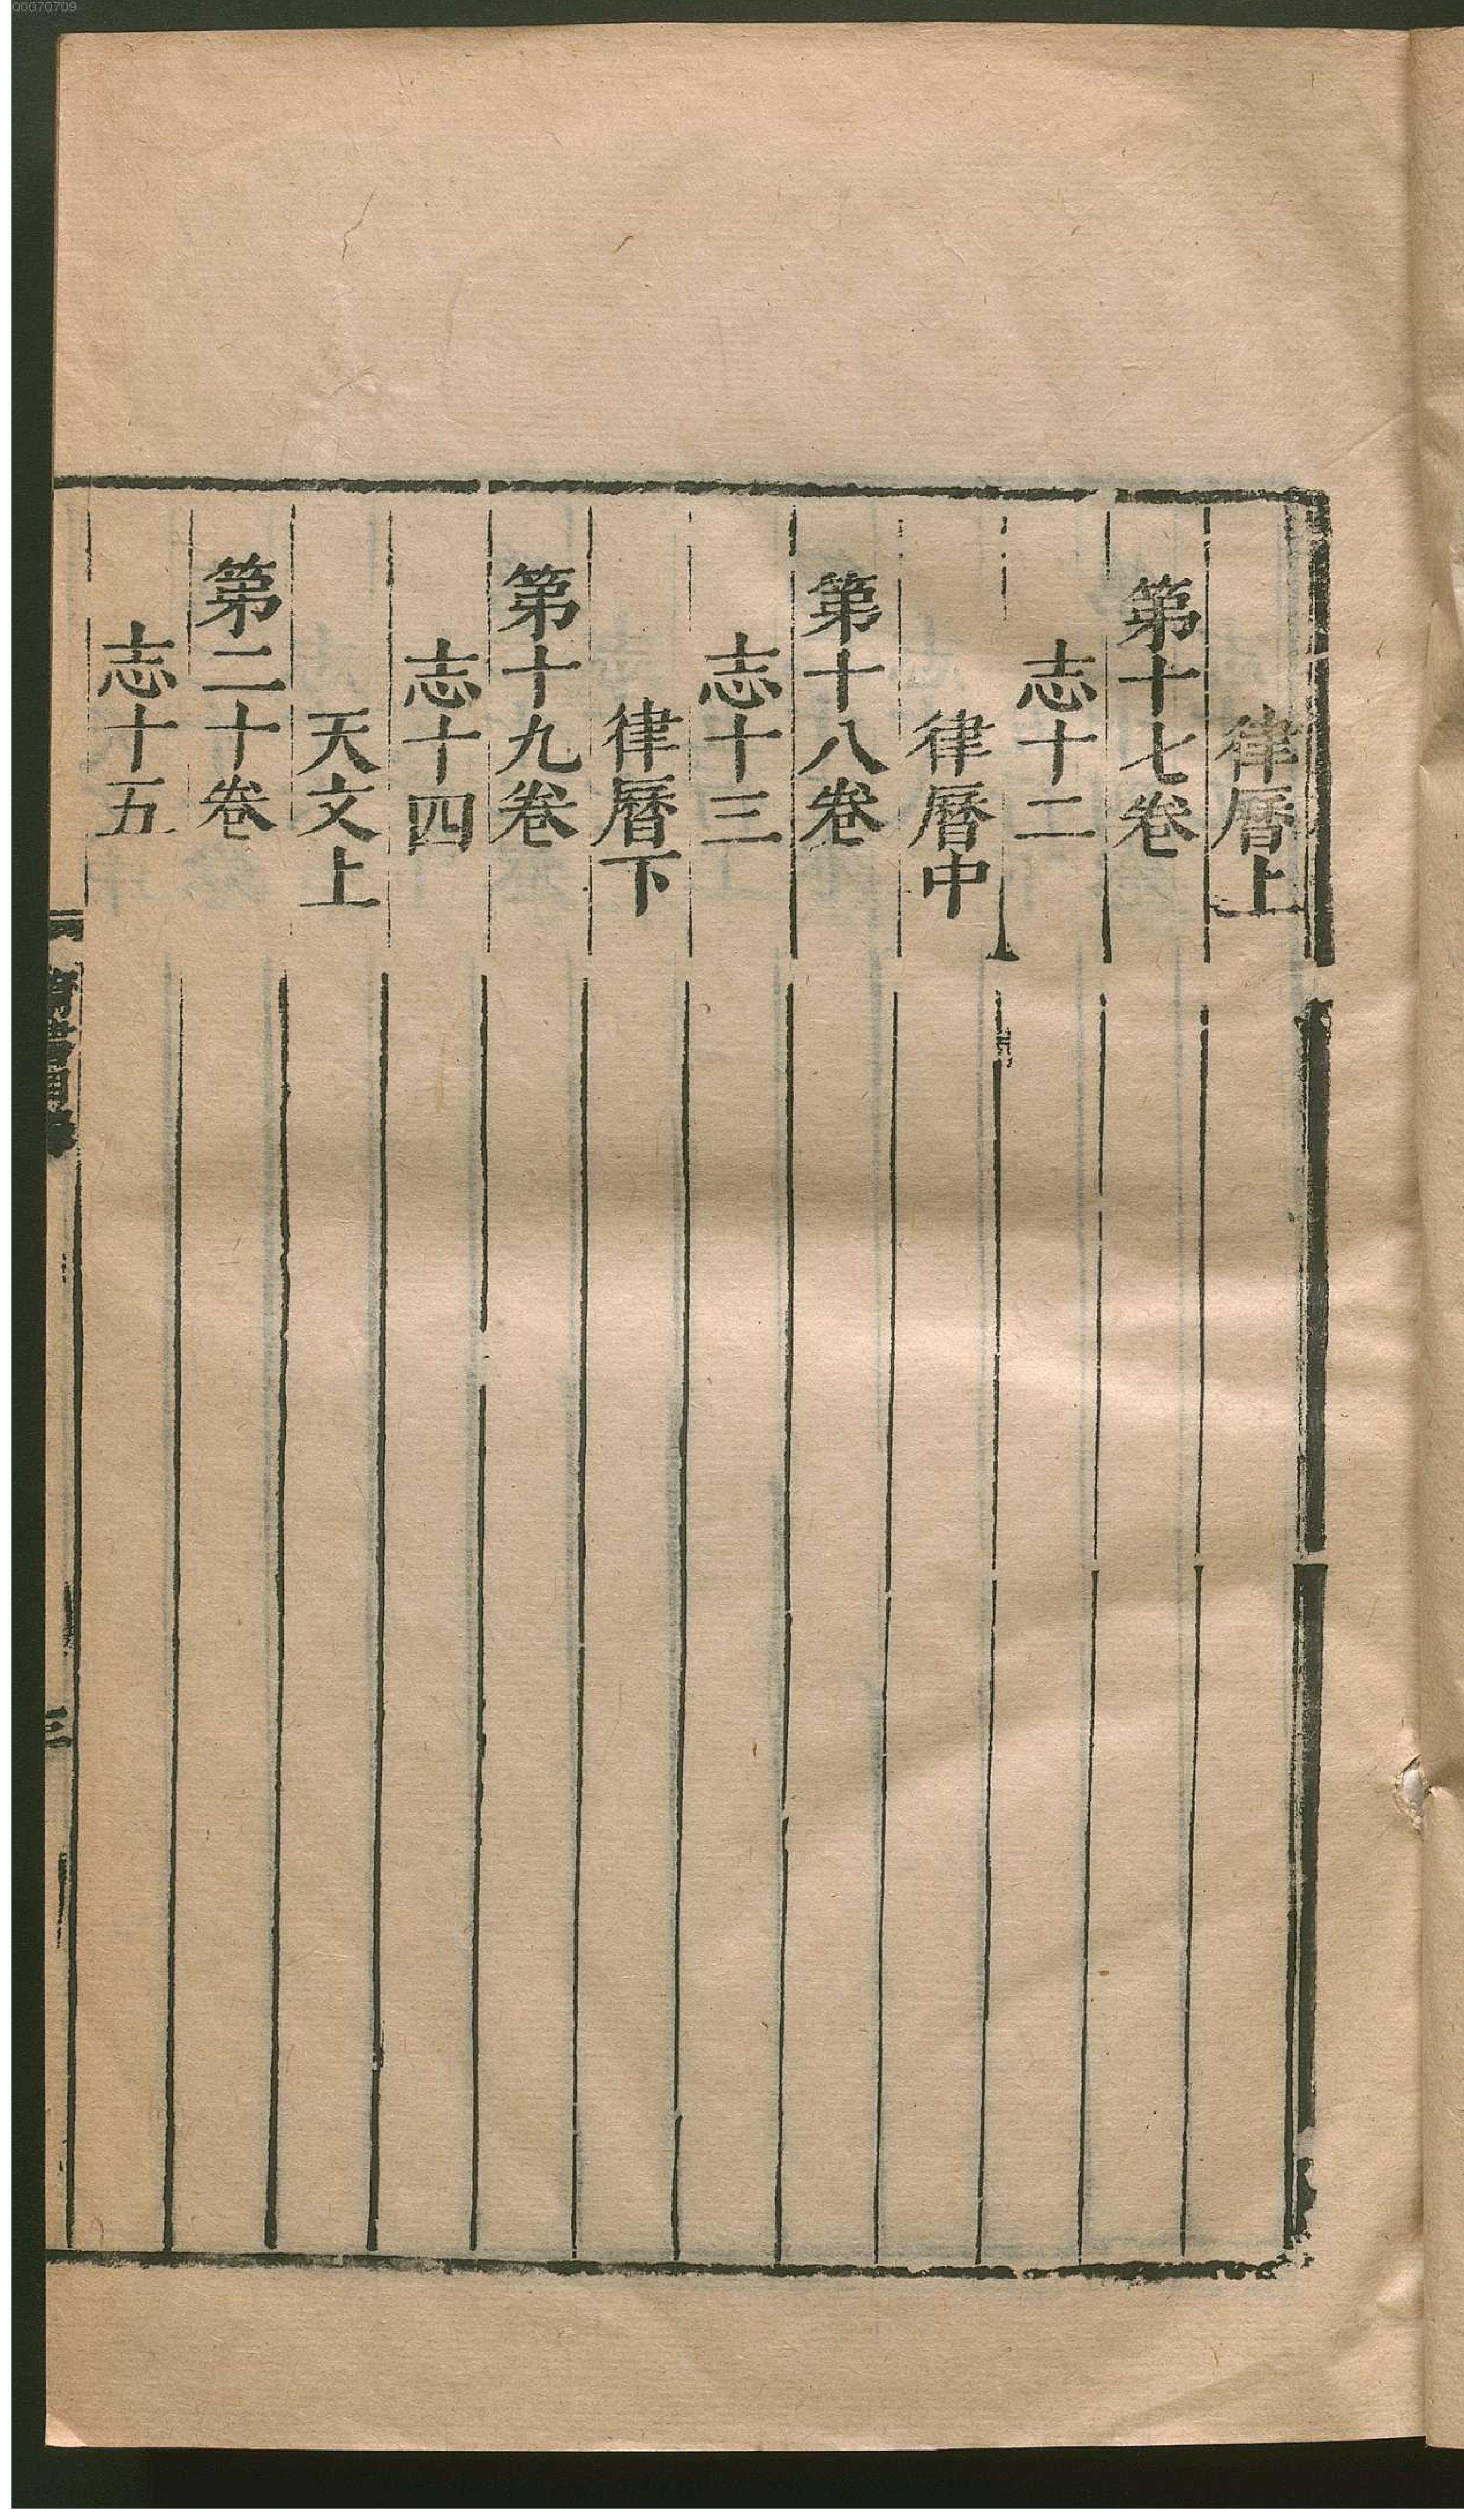 00070709
律曆上
第十七卷
志十二
律曆中
第十八卷
志十三
律曆下
第十九卷
志十四
天文上
第二十卷
志十五
三